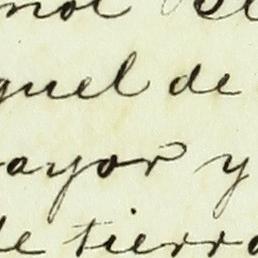 guel de
ayor y
de tierra